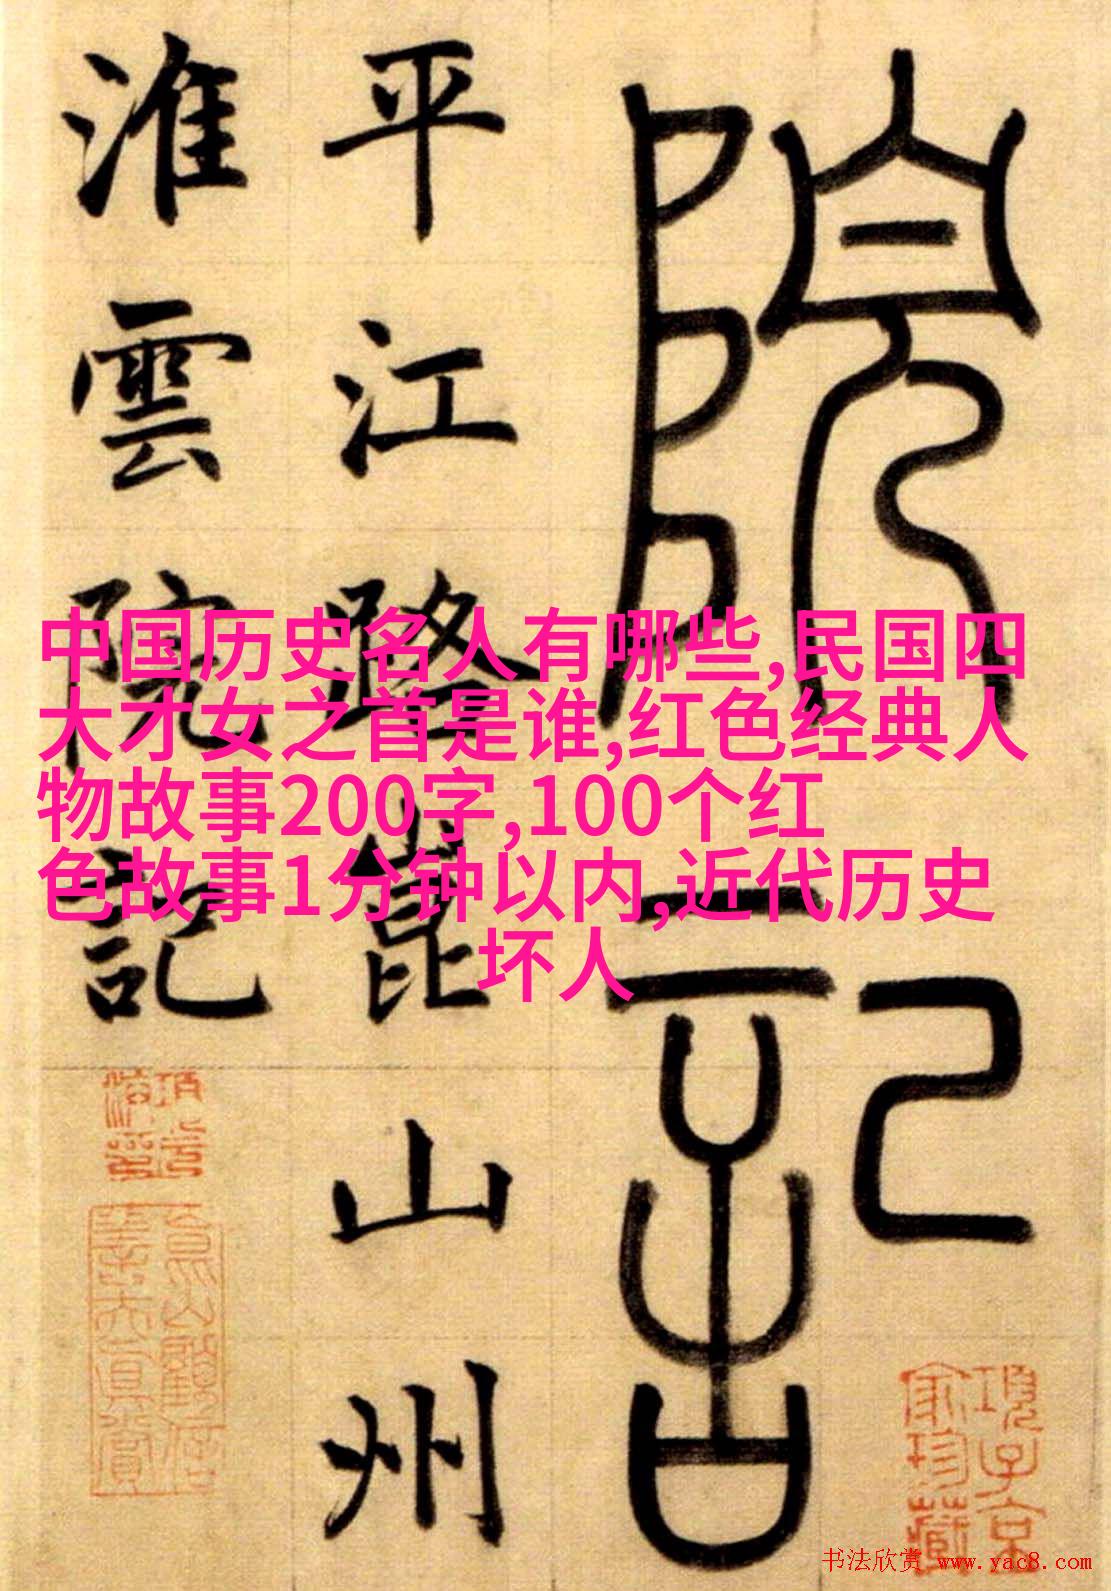 院記
平江路崑山州
淮雲院記
中国历史名人有哪些,民国四
大才女之首是谁,红色经典人
物故事200字,100个红
色故事1分钟以内,近代历史
坏人
项子京
家珍藏
书法欣赏 www.yac8.com